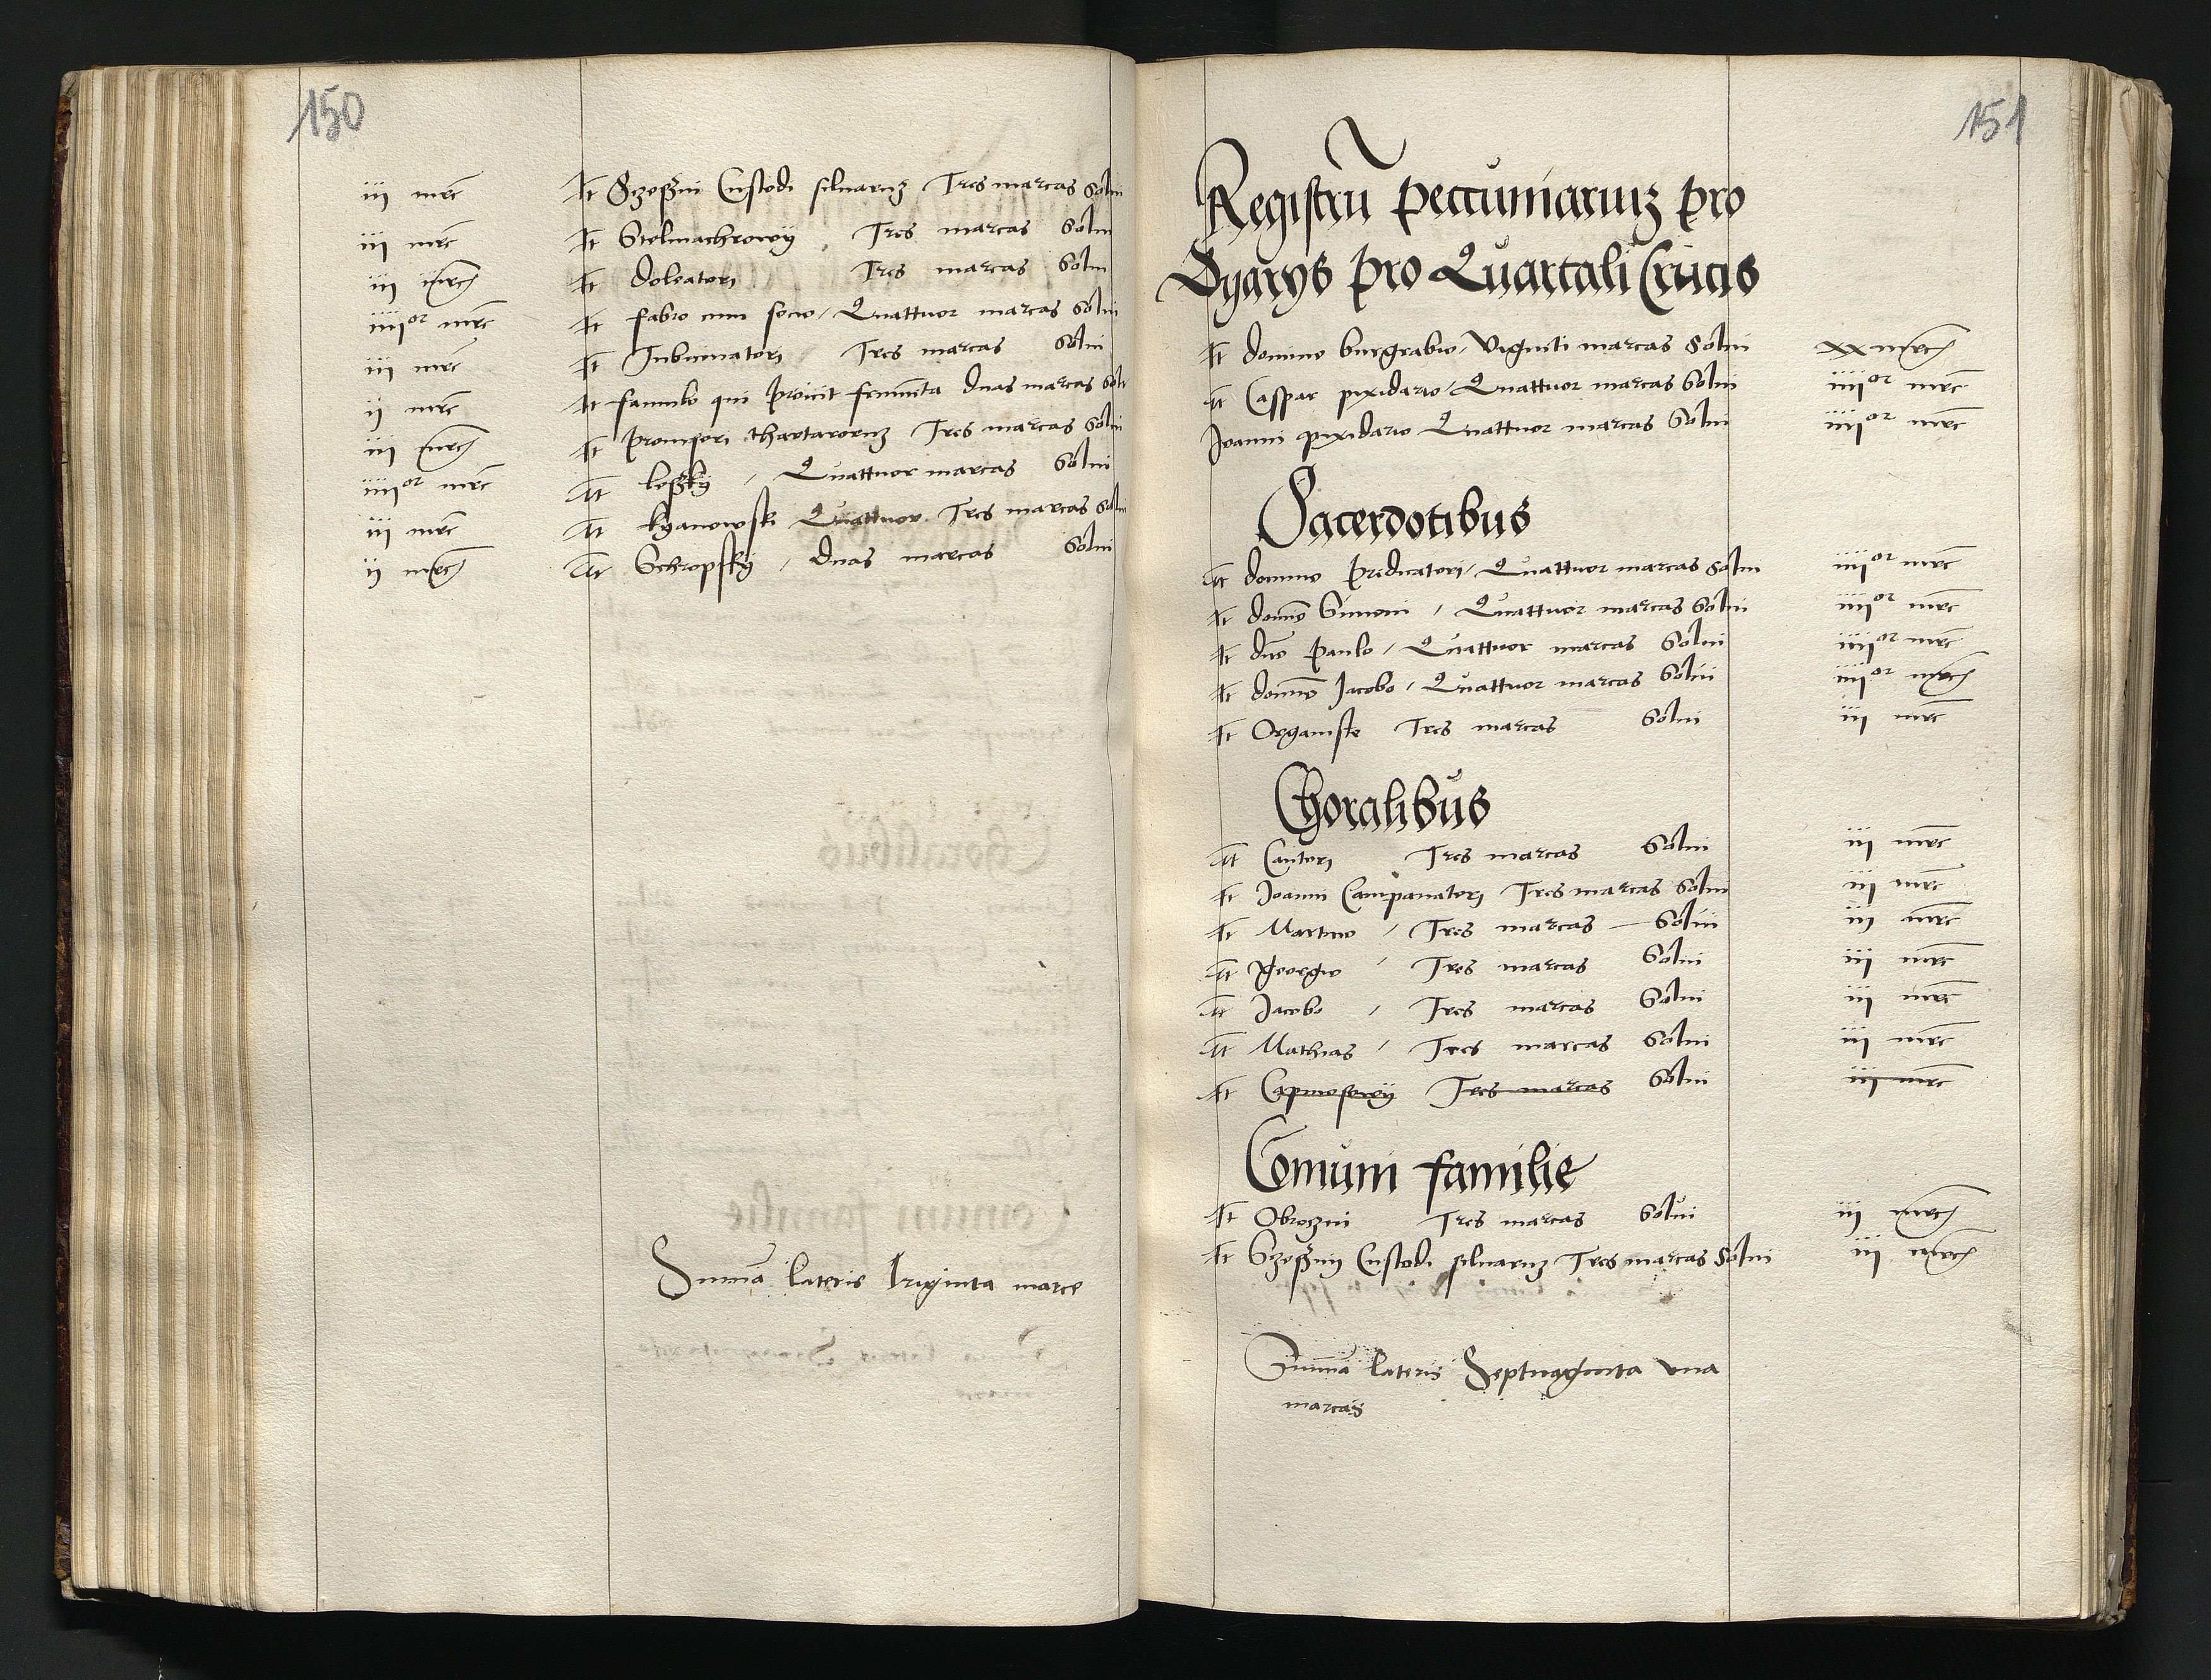 150
iii mrc It Szeßni Custodi siluaruz Tres marcas Solui
iii mrc It Stelmachrowy Tres marcas Solui
iii mrc It doleatori Tres marcas Solui
iiiior mrc It fabro cum socio / Quattuor marcas Solui
iii mrc It Tubicinatori Tres marcas Solui
ii mrc It famulo qui proicit frumenta duas marcas Solui
iii mrc It promisori thartaroruz Tres marcas Solui
iiiior mrc It leßky / Quattuor marcas Solui
iii mrc It kyanowski Quattuor Tres marcas Solui
ii mrc It Schropsky / duas marcas Solui
Summa lateris Triginta marce
151
Registru peccuniaruz pro
Dyarys pro Quartali Crucis
It domino burgrabio / viginti marcas Solui xx mrc
It Caspar pixidario / Quattuor marcas Solui iiiior mrc
Joanni pixidario Quattuor marcas Solui iiiior mrc
Sacerdotibus
It domino predicatori / Quattuor marcas Solui iiiior mrc
It domino Simoni / Quattuor marcas Solui iiiior mrc
It dno paulo / Quattuor marcas Solui iiiior mrc
It domino Jacobo / Quattuor marcas Solui iiiior mrc
It Organiste Tres marcas Solui iii mrc
Choralibus
It Cantori Tres marcas Solui iii mrc
It Joanni Campanatori Tres marcas Solui iii mrc
It Martino / Tres marcas — Solui iii mrc
It georgio / Tres marcas Solui iii mrc
It Jacobo / Tres marcas Solui iii mrc
It Mathias / Tres marcas Solui iii mrc
It Tres marcas Solui iii mrc
Comuni familie
It Obroczni Tres marcas Solui iii mrc
It Szeßny Custodi siluaruz Tres marcas Solui iii mrc
Summa lateris Septuaginta vna
marcas